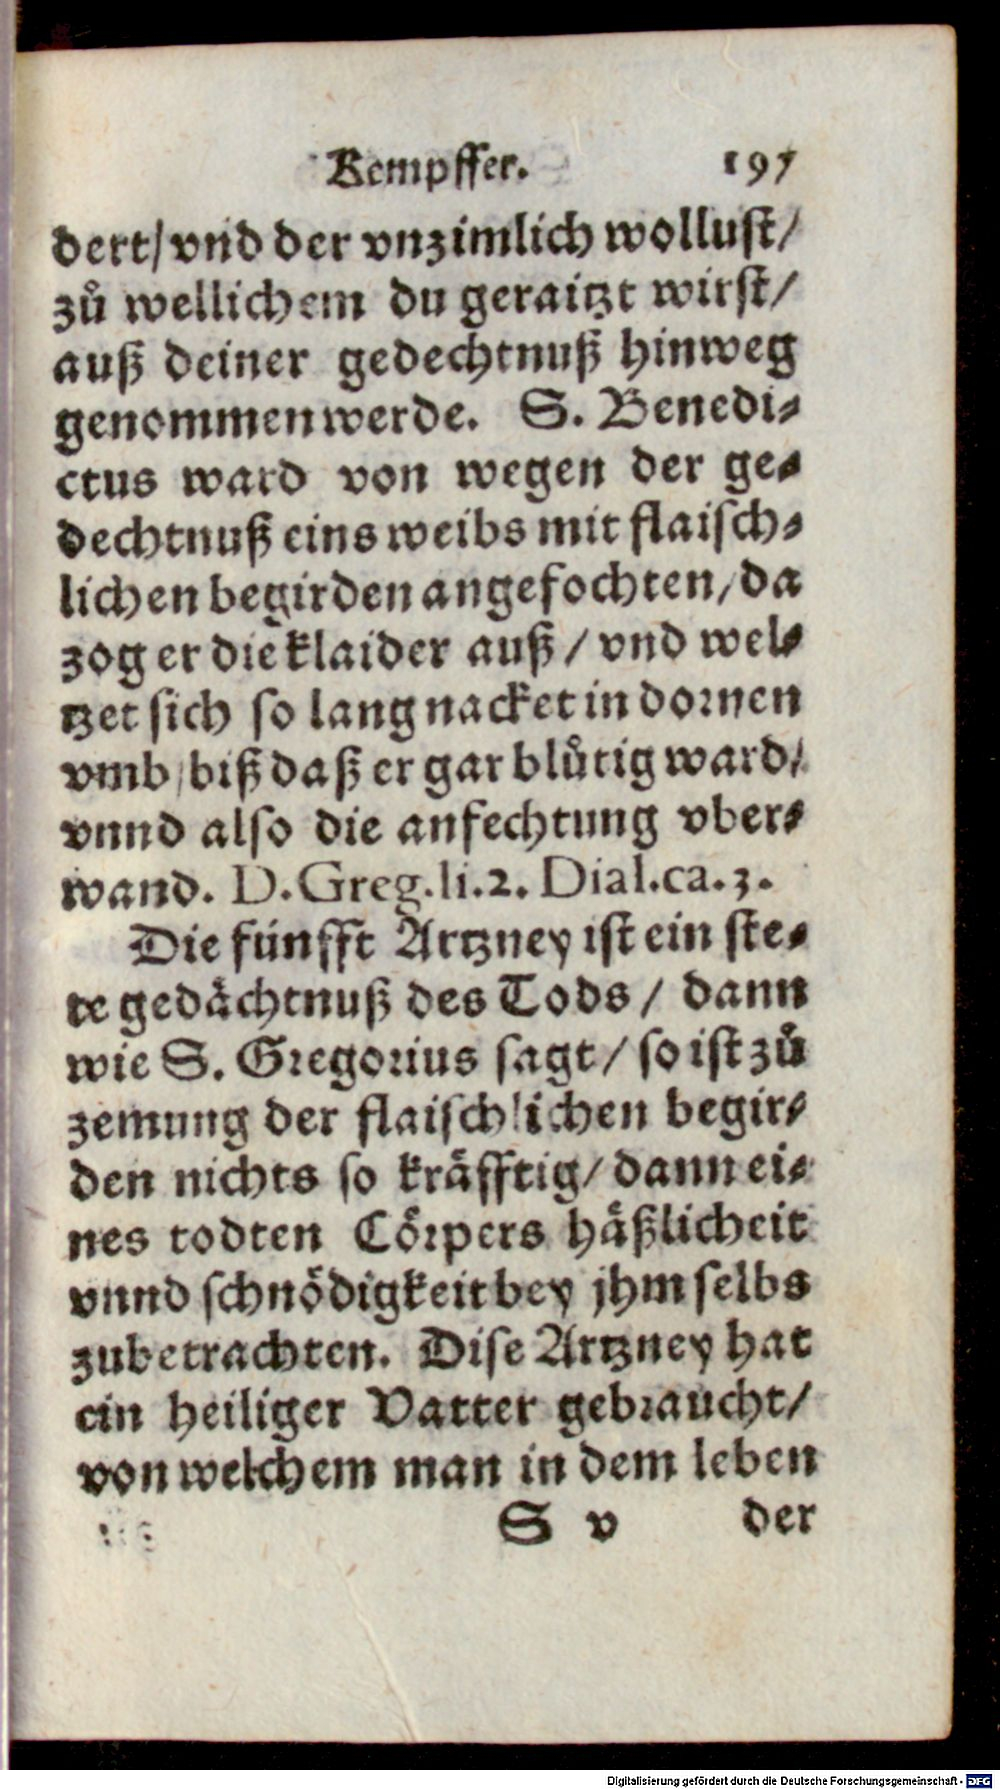 Kempffer. 197
dert/ vnd der vnzimlich wollust/
zů wellichem du geraitzt wirst/
auß deiner gedechtnuß hinweg
genommen werde. S. Benedi-
ctus ward von wegen der ge-
dechtnuß eins weibs mit flaisch-
lichen begirden angefochten/ da
zog er die klaider auß / vnd wel-
tzet sich so lang nacket in dornen
vmb / biß daß er gar blůtig ward/
vnnd also die anfechtung vber-
wand. D. Greg. li. 2. Dial. ca. 3.
Die fünfft Artzney ist ein ste-
te gedächtnuß des Tods / dann
wie S. Gregorius sagt / so ist zů
zemung der flaischlichen begir-
den nichts so kräfftig/ dann ei-
nes todten Cörpers häßlicheit
vnnd schnödigkeit bey jhm selbs
zubetrachten. Dise Artzney hat
ein heiliger Vatter gebraucht/
von welchem man in dem leben
S v der
Digitalisierung gefördert durch die Deutsche Forschungsgemeinschaft - DFG